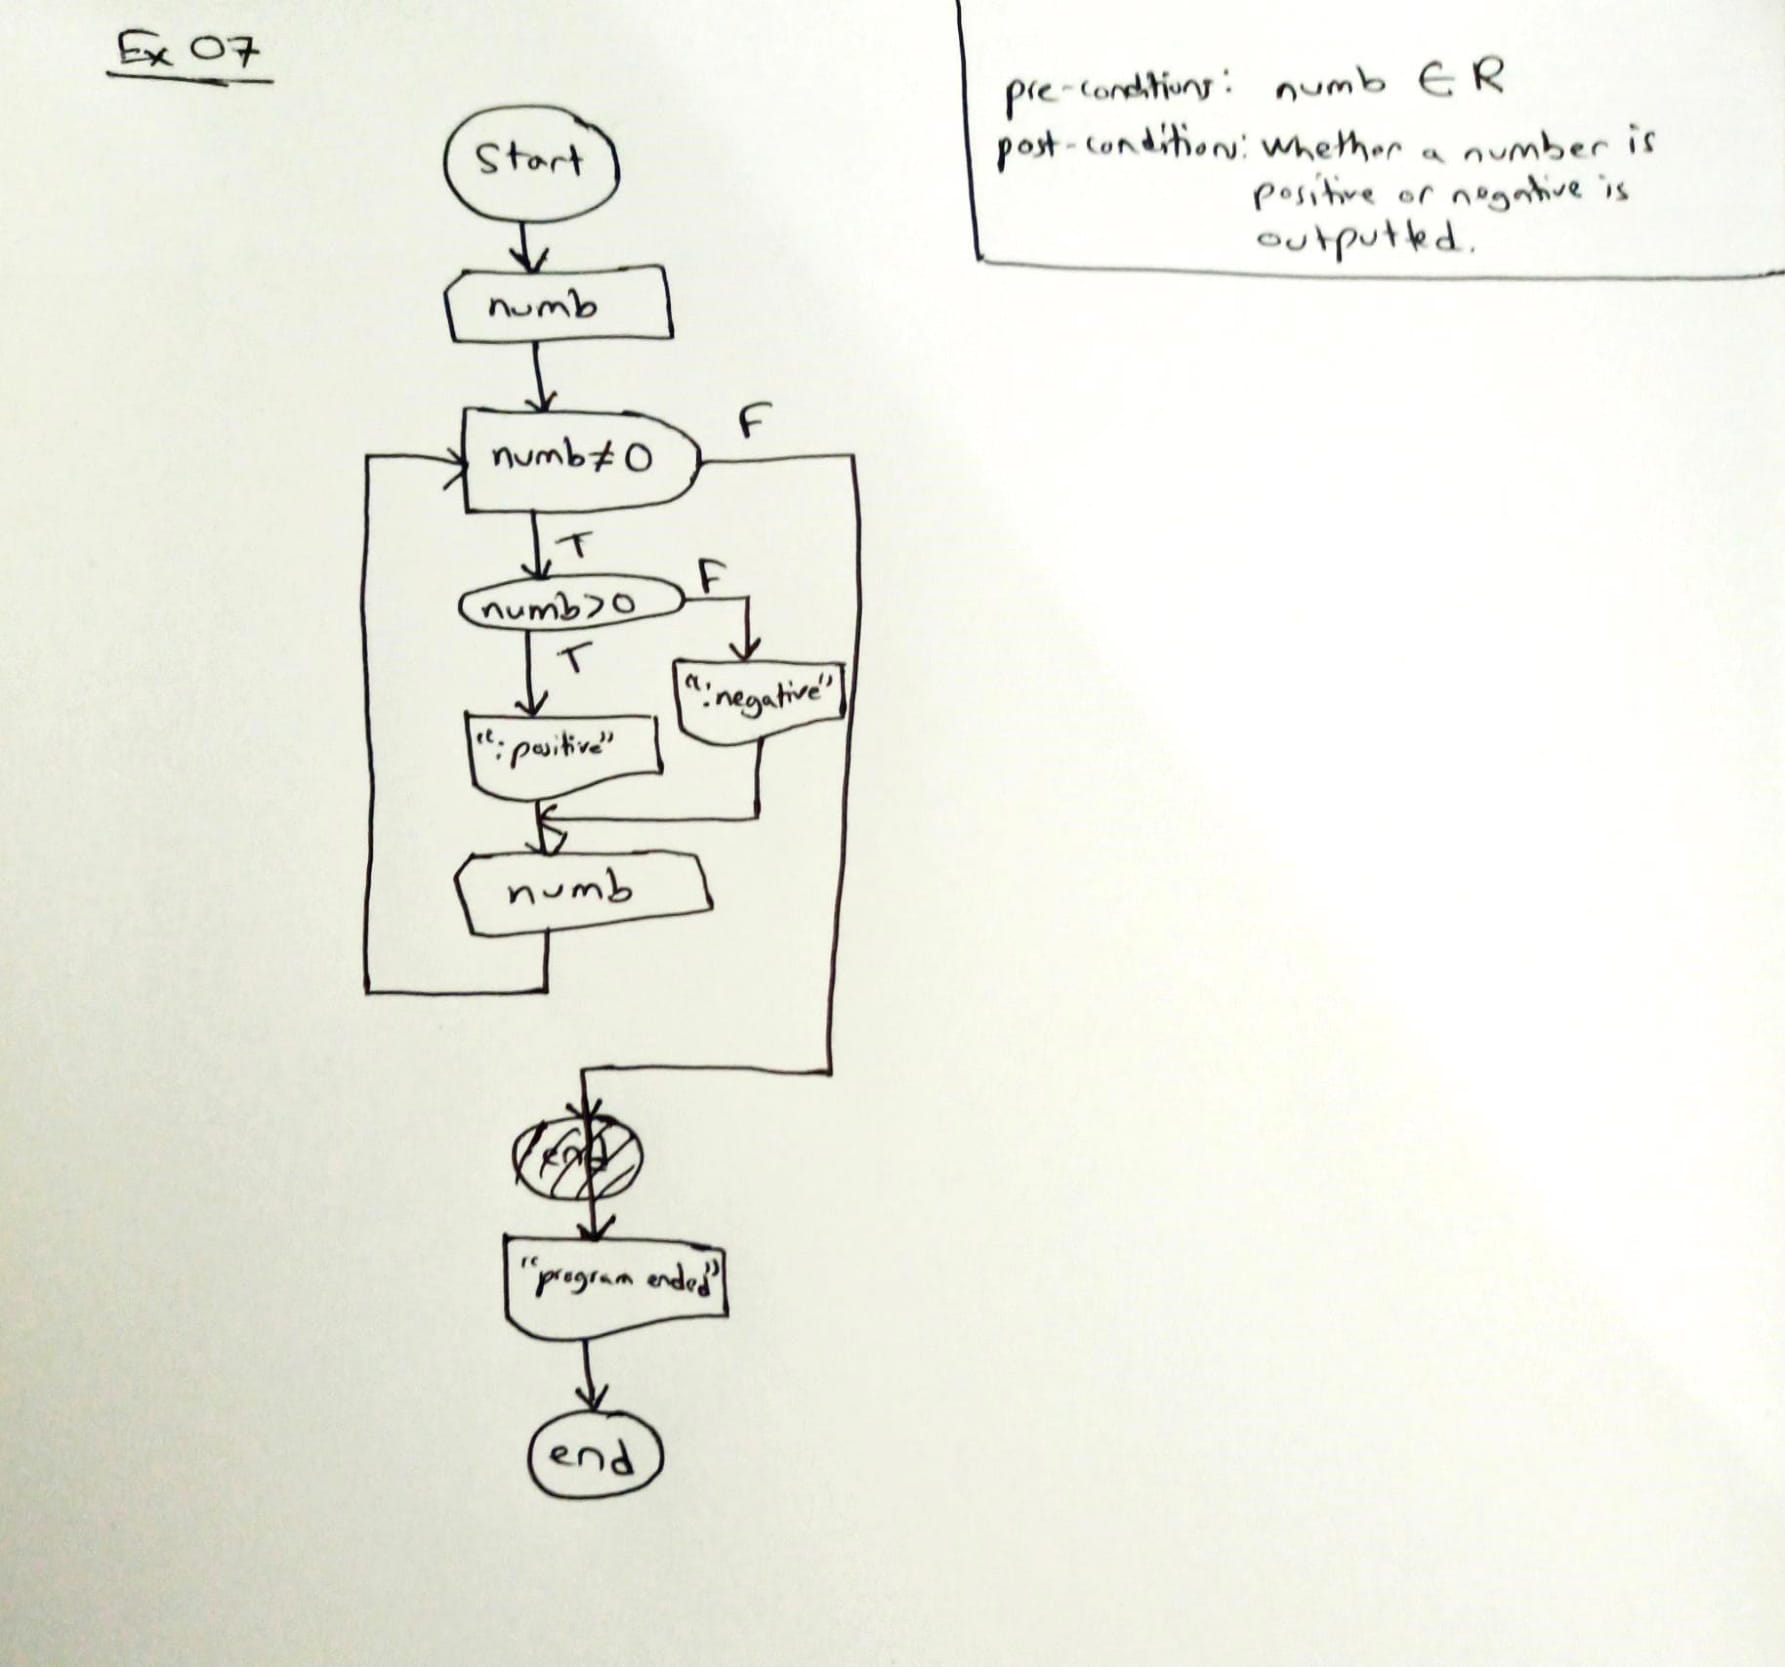 Ex 07
pre-conditions: numb ∈ R
post-condition: whether a number is
positive or negative is
outputted.
Start
numb
numb≠0
F
T
numb>0
F
T
":negative"
":positive"
numb
end
"program ended"
end